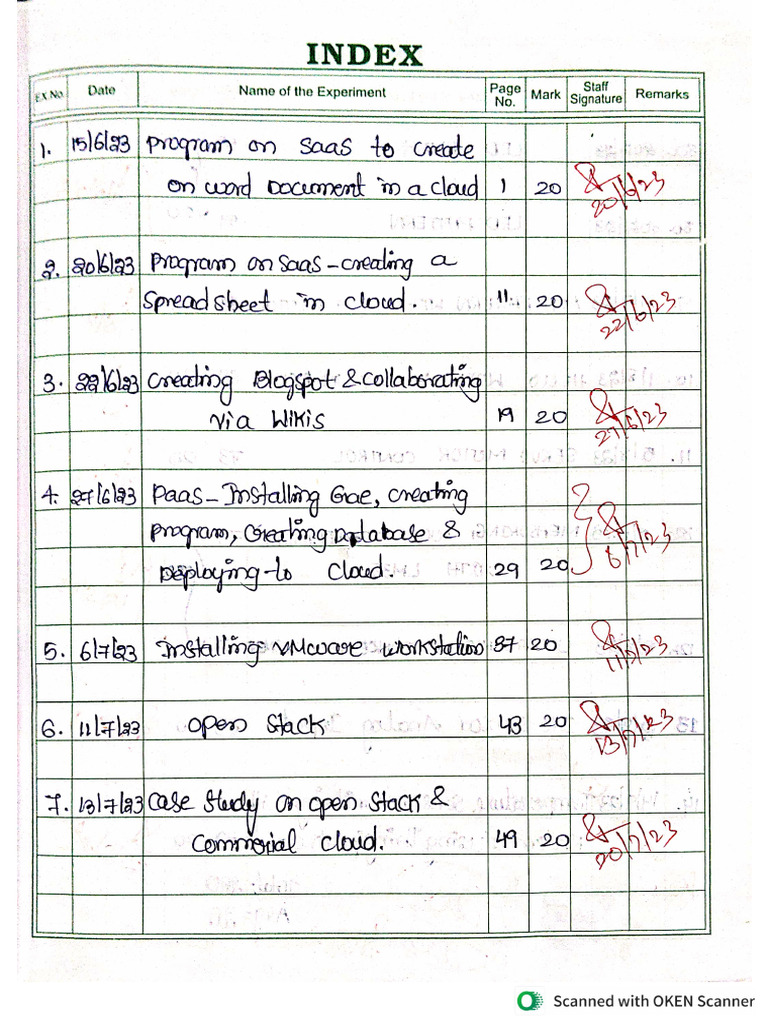 INDEX
Ex.No. Date Name of the Experiment Page No. Mark Staff Signature Remarks
1. 15/6/23 Program on SaaS to create
on word Document in a cloud 1 20
20/6/23
2. 20/6/23 Program on SaaS - creating a
Spreadsheet in cloud. 11 20
22/6/23
3. 22/6/23 Creating Blogspot & Collaborating
Via Wikis 19 20
27/6/23
4. 27/6/23 Paas - Installing Gae, creating
Program, Creating Database &
Deploying to Cloud. 29 20
6/7/23
5. 6/7/23 Installing VMware workstation 37 20
11/7/23
6. 11/7/23 Open Stack 43 20
13/7/23
7. 13/7/23 Case Study on open stack &
Commerial cloud. 49 20
20/7/23
Scanned with OKEN Scanner